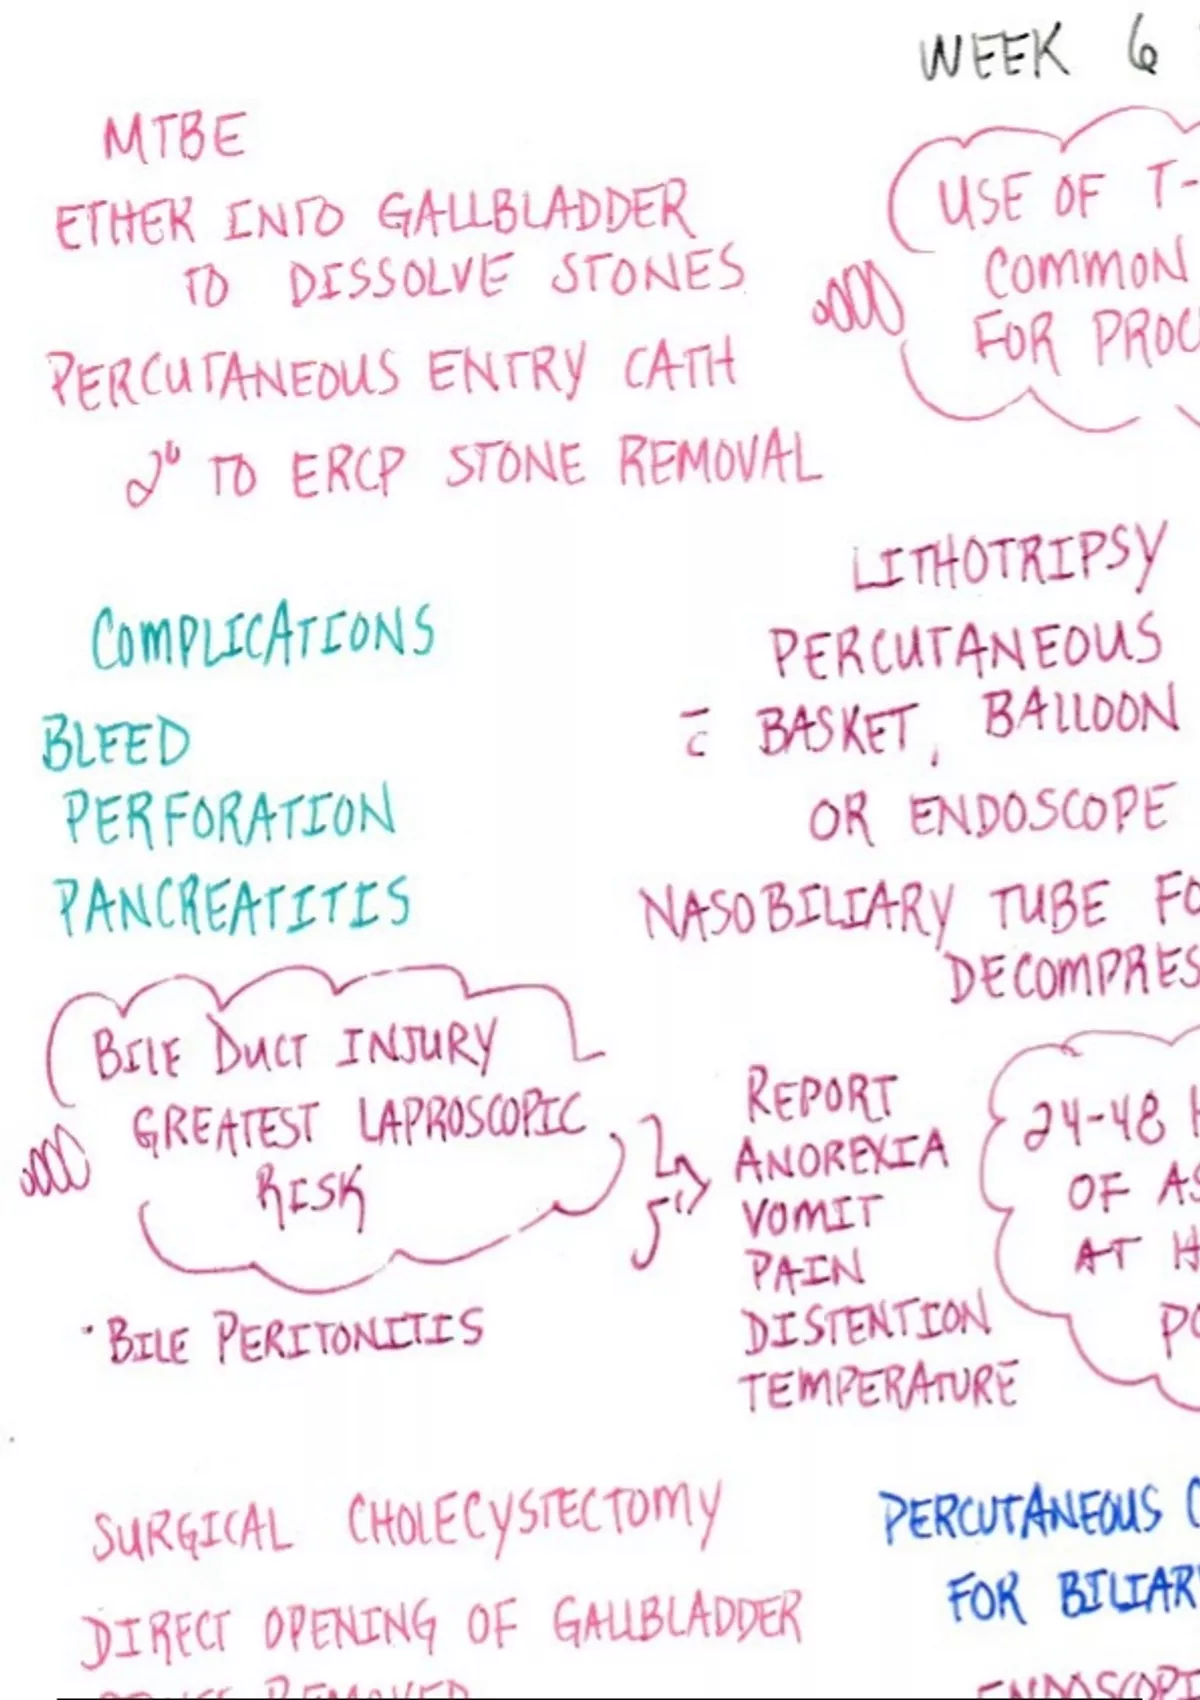 WEEK 6
MTBE
ETHER INTO GALLBLADDER
TO DISSOLVE STONES
PERCUTANEOUS ENTRY CATH
2° TO ERCP STONE REMOVAL
USE OF T-
COMMON
FOR PROC
LITHOTRIPSY
PERCUTANEOUS
c̄ BASKET, BALLOON
OR ENDOSCOPE
NASOBILIARY TUBE FO
DECOMPRES
COMPLICATIONS
BLEED
PERFORATION
PANCREATITIS
BILE DUCT INJURY
GREATEST LAPROSCOPIC
RISK
REPORT
ANOREXIA
VOMIT
PAIN
DISTENTION
TEMPERATURE
24-48 H
OF AS
AT H
PO
· BILE PERITONITIS
SURGICAL CHOLECYSTECTOMY
DIRECT OPENING OF GALLBLADDER
REMOVED
PERCUTANEOUS C
FOR BILIARY
ENDOSCOPI